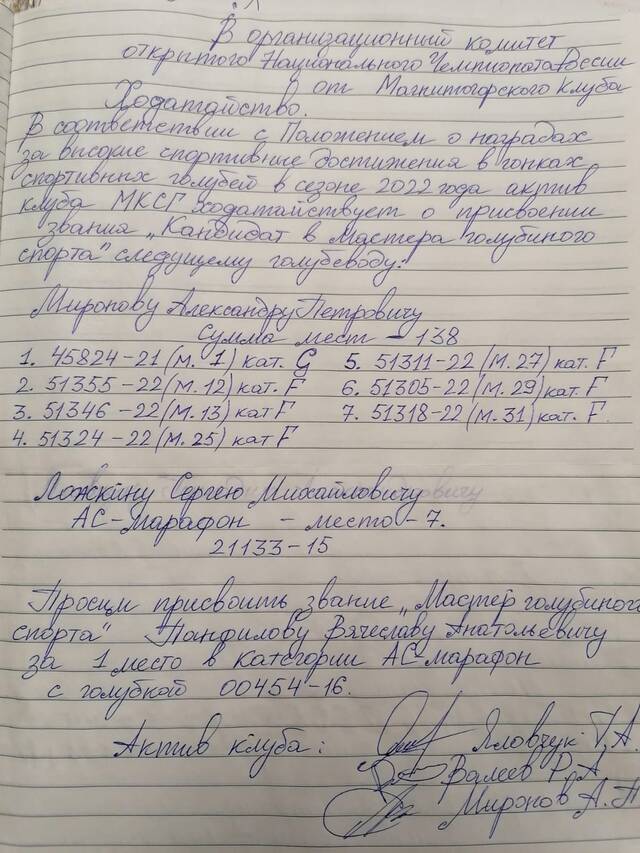 В организационный комитет
открытого Национального Чемпионата России
от Магнитогорского клуба
Ходатайство.
В соответствии с Положением о наградах
за высокие спортивные достижения в гонках
спортивных голубей в сезоне 2022 года актив
клуба МКСГ ходатайствует о присвоении
звания „Кандидат в Мастера голубиного
спорта" следущему голубеводу:
Миронову Александру Петровичу
Сумма мест – 138
1. 45824-21 (м. 1) кат. G 5. 51311-22 (м. 27) кат. F
2. 51355-22 (м. 12) кат. F 6. 51305-22 (м. 29) кат. F
3. 51346-22 (м. 13) кат F 7. 51318-22 (м. 31) кат. F
4. 51324-22 (м. 25) кат F
Ложкину Сергею Михайловичу
АС-марафон – место – 7.
21133-15
Просим присвоить звание „Мастер голубиного
спорта" Панфилову Вячеславу Анатольевичу
за 1 место в категории АС-марафон
с голубкой 00454-16.
Актив клуба: Яловчук Г.А.
Валеев Р.А
Миронов А.П